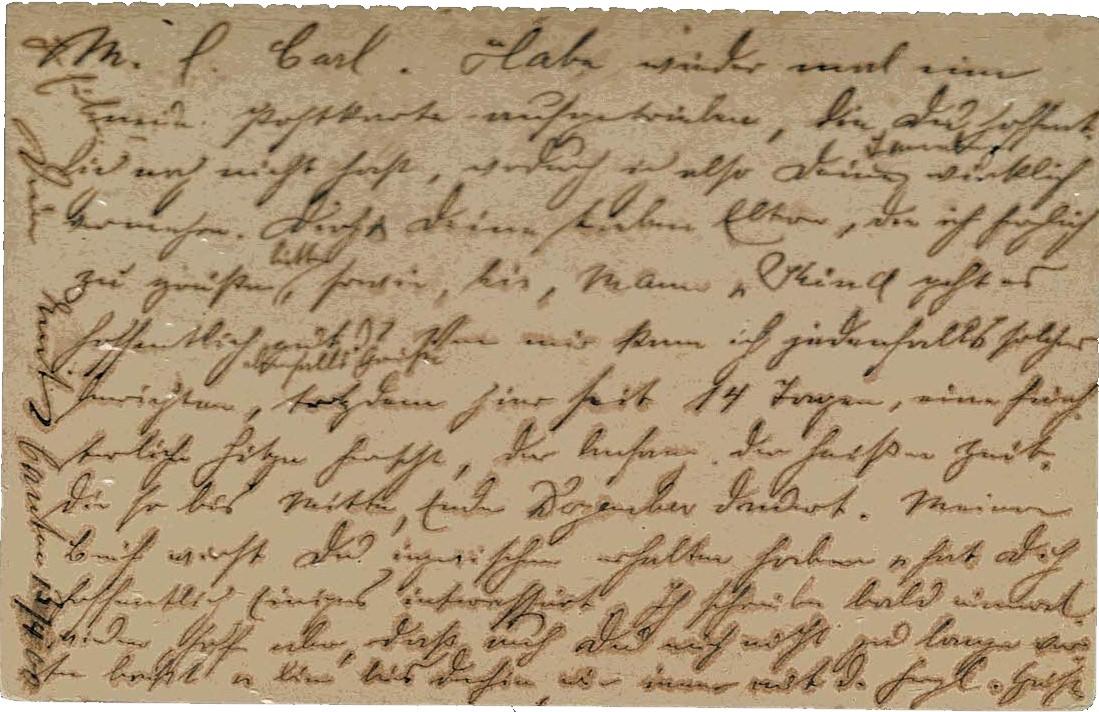 M. l. Carl. Habe wieder mal eine
neue Postkarte aufgetrieben, die Du hoffent-
lich noch nicht hast, wodurch ich also Deine Samml. wirklich
vermehre. Dich & Deine lieben Eltern, die ich herzlich
zu grüßen bitte, sowie, Mann u. Kind geht es
hoffentlich gut? Von mir kann ich jedenfalls solches
ebenfalls Grüße
berichten, trotzdem hier seit 14 Tagen, eine fürch-
terliche Hitze herrscht, der Anfang der heißen Zeit,
die so bis Mitte, Ende Dezember dauert. Meinen
Brief wirst Du inzwischen erhalten haben u. hat Dich
hoffentlich Einiges interessirt. Ich schreibe bald einmal
wieder hoffe aber, daß auch Du mich nicht zu lange war-
ten läßt u. bin bis dahin wie immer mit d. herzl. Grüße
Dein